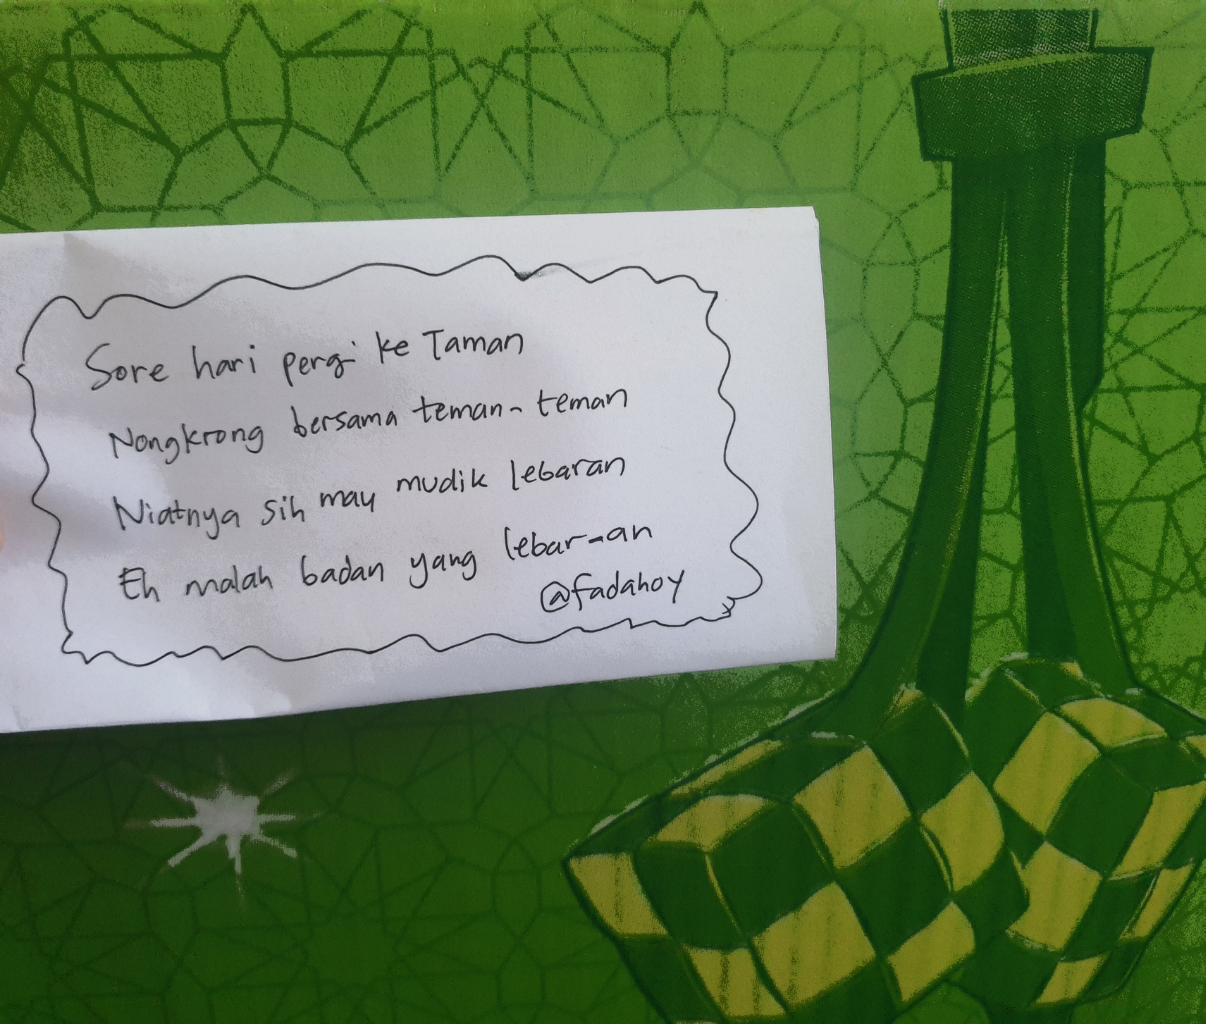 Sore hari pergi ke Taman
Nongkrong bersama teman-teman
Niatnya sih mau mudik lebaran
Eh malah badan yang lebar-an
@fadahoy